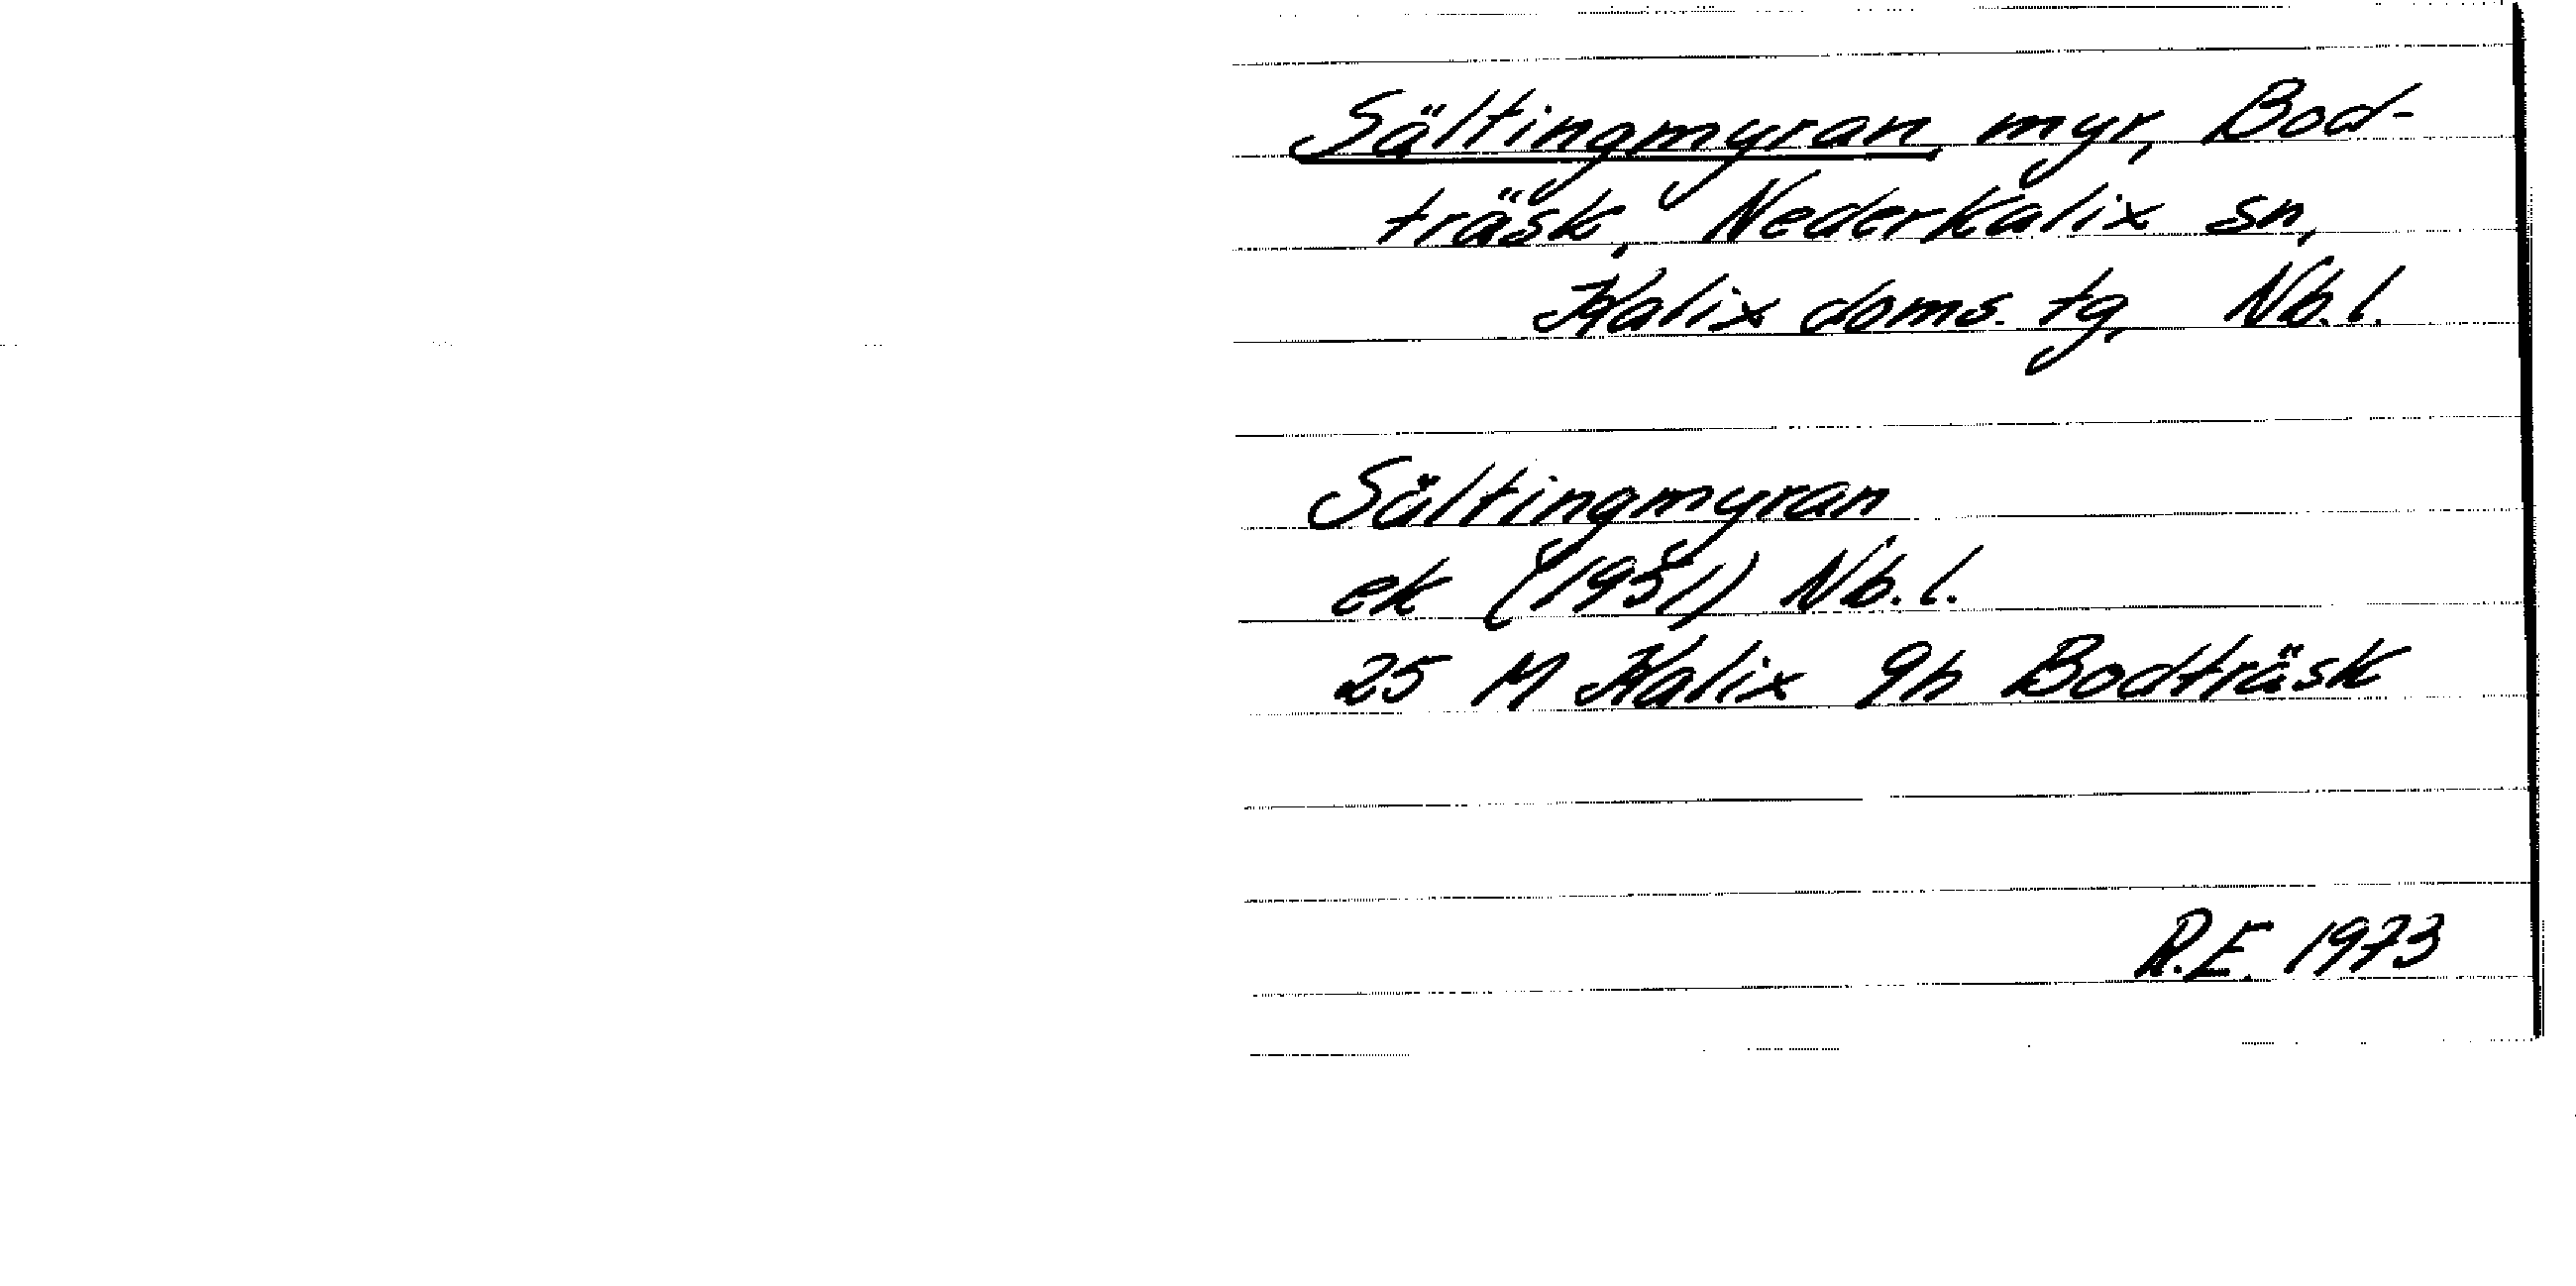 Sältingmyran, myr, Bod-
träsk, Nederkalix sn,
Kalix doms. tg, Nb.l.
Sältingmyran
ek (1951) Nb.l.
25 M Kalix 9h Bodträsk
R.E. 1973